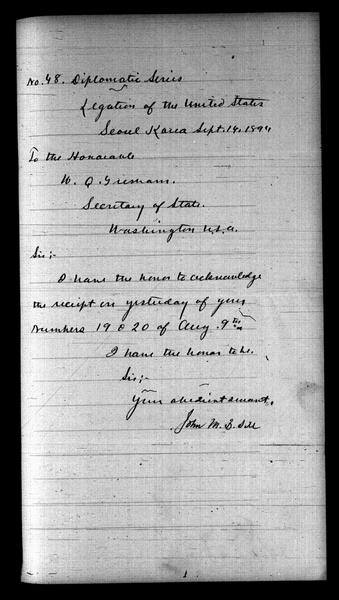 No. 48. Diplomatic Series
Legation of the United States
Seoul Korea Sept. 14, 1894
To the Honorable
W. Q. Gresham.
Secretary of State.
Washington U.S.A.
Sir;-
I have the honor to acknowledge
the receipt on yesterday of your
Numbers 19 & 20 of Aug. 9th
I have the honor to be.
Sir;-
Your obedient servant,
John M. B. Sill